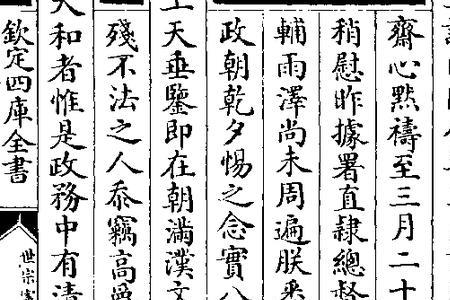 齋心黙禱至三月二十
稍慰昨據署直隸總督
輔雨澤尚未周遍朕
政朝乾夕惕之念實
上天垂鑒即在朝滿漢文
殘不法之人忝竊高
大和者惟是政務中有
欽定四庫全書
世宗